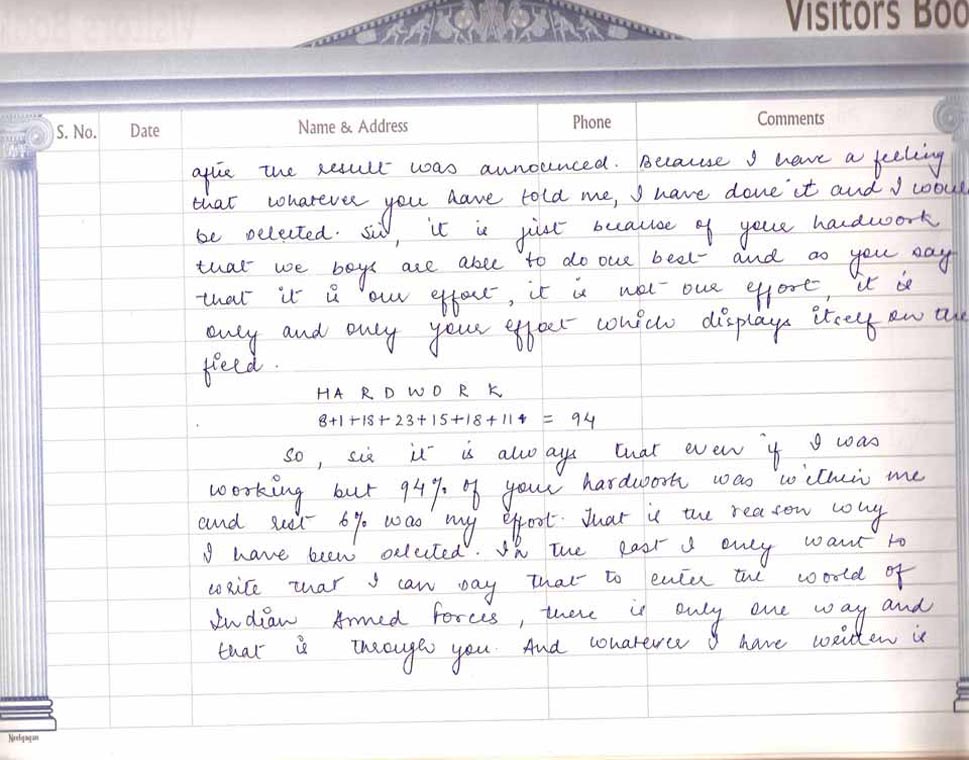 Visitors Boo
S. No. Date Name & Address Phone Comments
after the result was announced. Because I have a feeling
that whatever you have told me, I have done it and I woul
be selected. Sir, it is just because of your hardwork
that we boys are able to do our best and as you say
that it is our effort, it is not our effort, it is
only and only your effort which displays itself on the
field.
HARDWORK
8+1+18+23+15+18+11+ = 94
So, sir it is always that even if I was
working but 94% of your hardwork was within me
and rest 6% was my effort. That is the reason why
I have been selected. In the last I only want to
write that I can say that to enter the world of
Indian Armed Forces, there is only one way and
that is through you. And whatever I have written is
Neelgagan